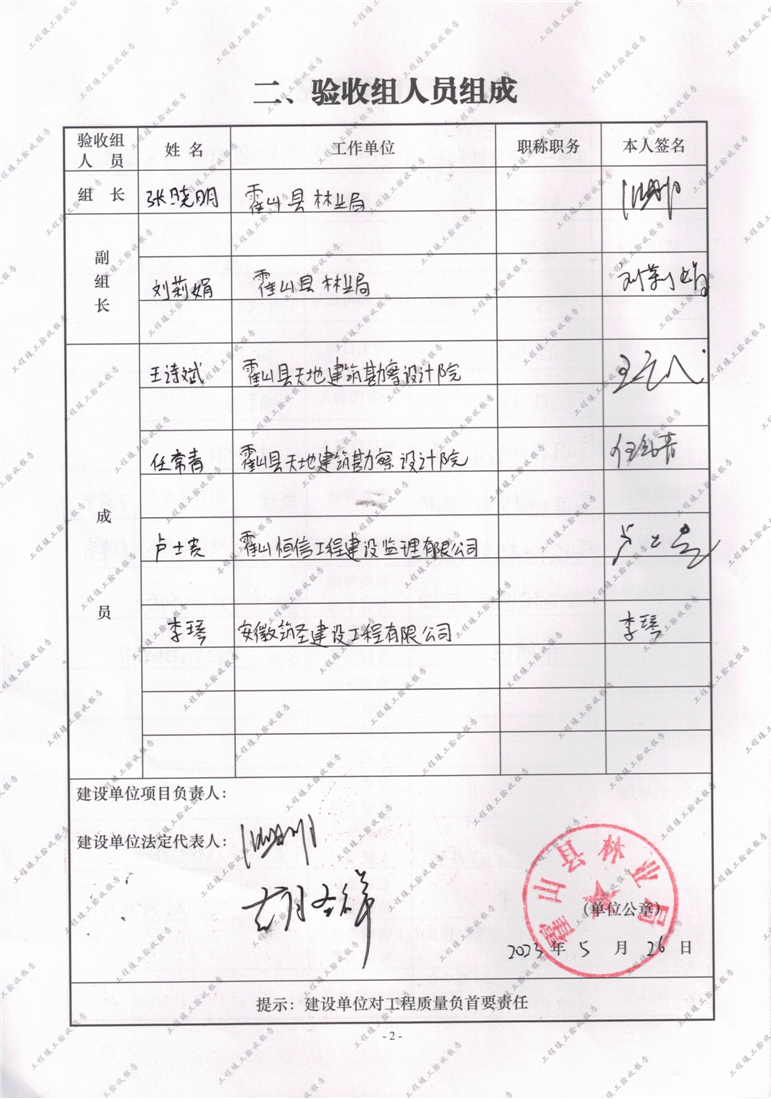 二、验收组人员组成
验收组人 员 姓 名 工作单位 职称职务 本人签名
组 长 张晓明 霍山县林业局
副组长 刘莉娟 霍山县林业局 刘莉娟
成员
王诗斌 霍山县天地建筑勘察设计院
任常青 霍山县天地建筑勘察设计院 任常青
卢士贵 霍山恒信工程建设监理有限公司 卢士贵
李琴 安徽筑圣建设工程有限公司 李琴
建设单位项目负责人：
建设单位法定代表人：
霍山县林业局
（单位公章）
2023 年 5 月 26 日
提示：建设单位对工程质量负首要责任
- 2 -
工程竣工验收报告